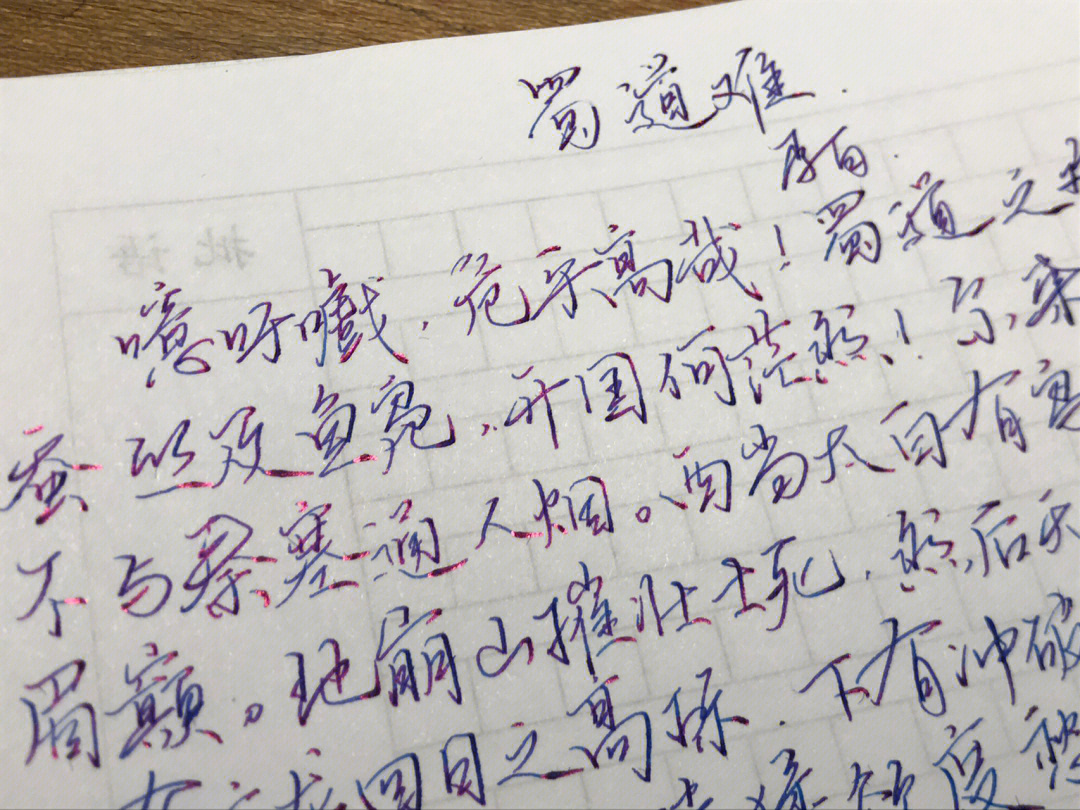 蜀道难.
李白.
噫吁嚱,危乎高哉!蜀道之
蚕丛及鱼凫,开国何茫然!尔来
不与秦塞通人烟。西当太白有
眉巅。地崩山摧壮士死,然后天
龙回日之高标,下有冲波
猱欲度愁